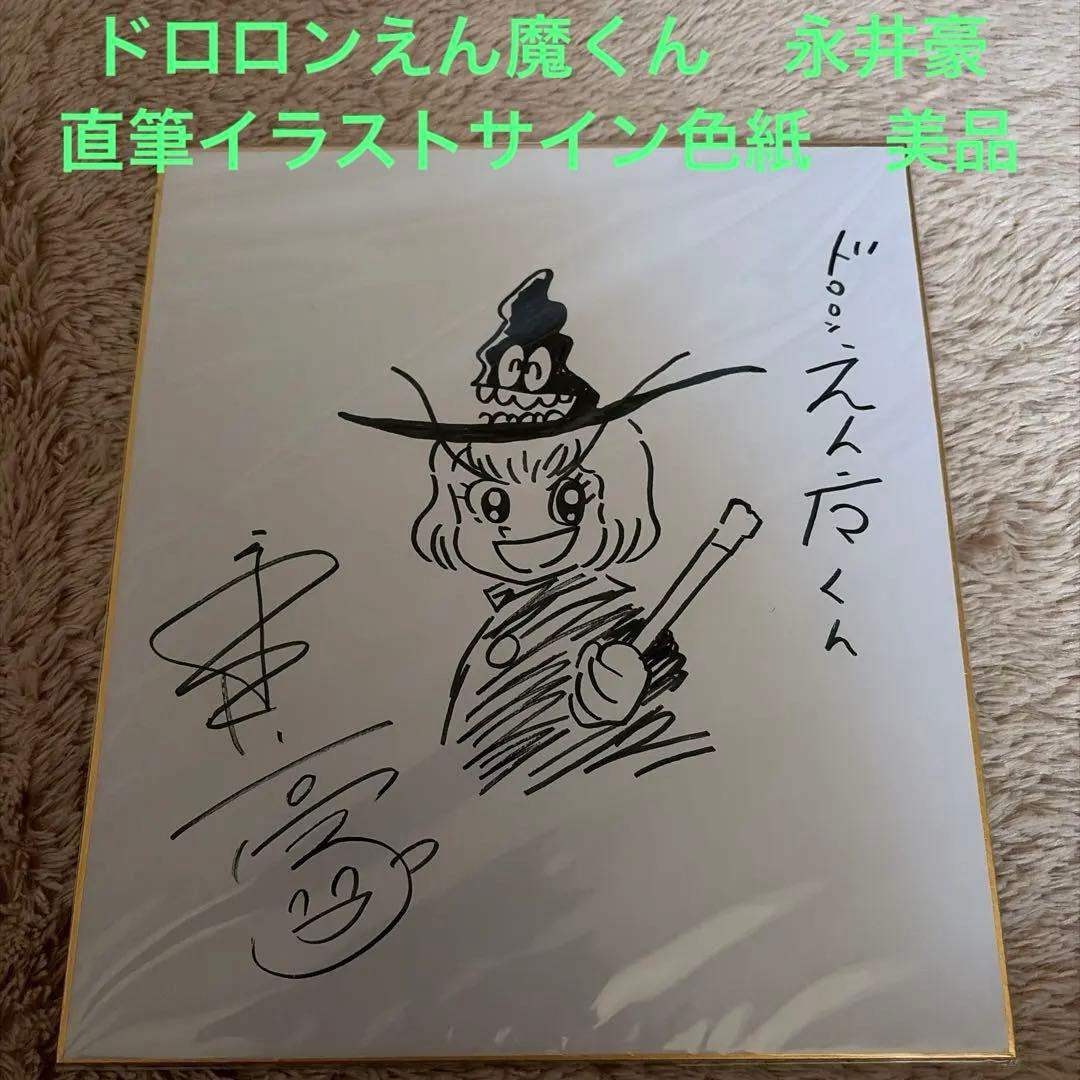 ドロロンえん魔くん　永井豪
直筆イラストサイン色紙　美品
ドロロン
えん魔くん